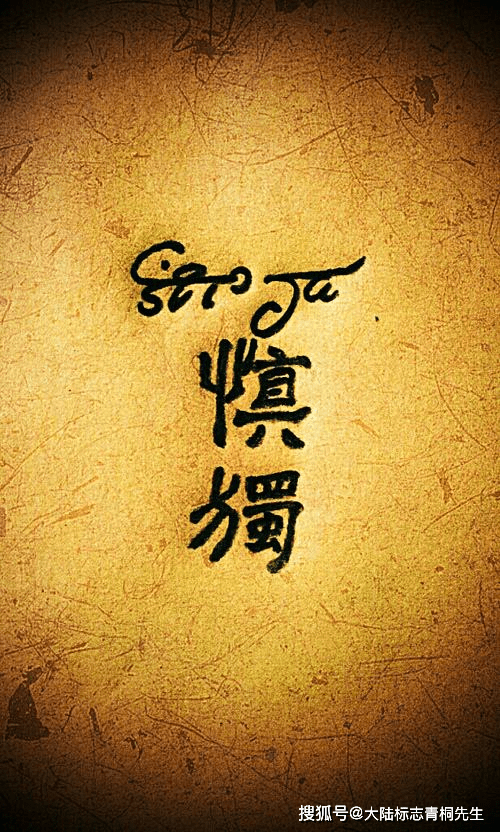 慎
獨
搜狐号@大陆标志青桐先生